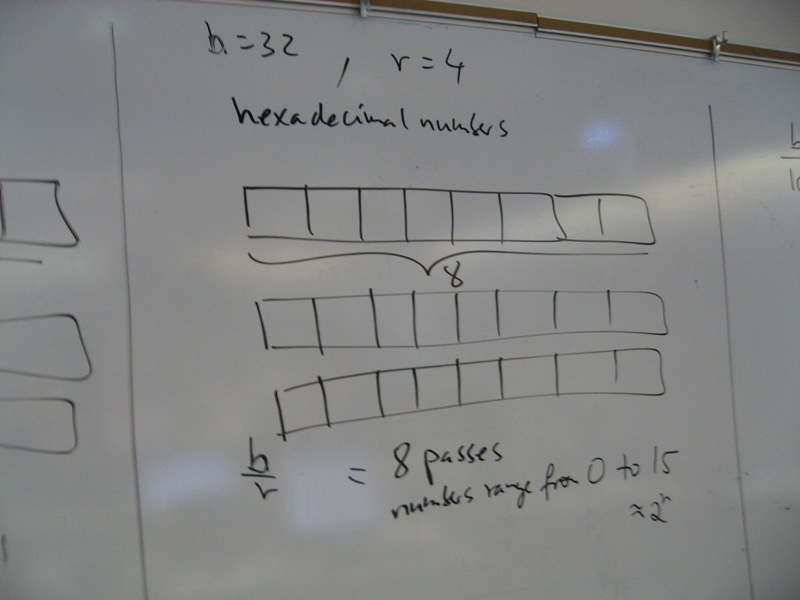 b = 32 , r = 4
hexadecimal numbers
8
b/r = 8 passes
numbers range from 0 to 15
≈ 2^r
b